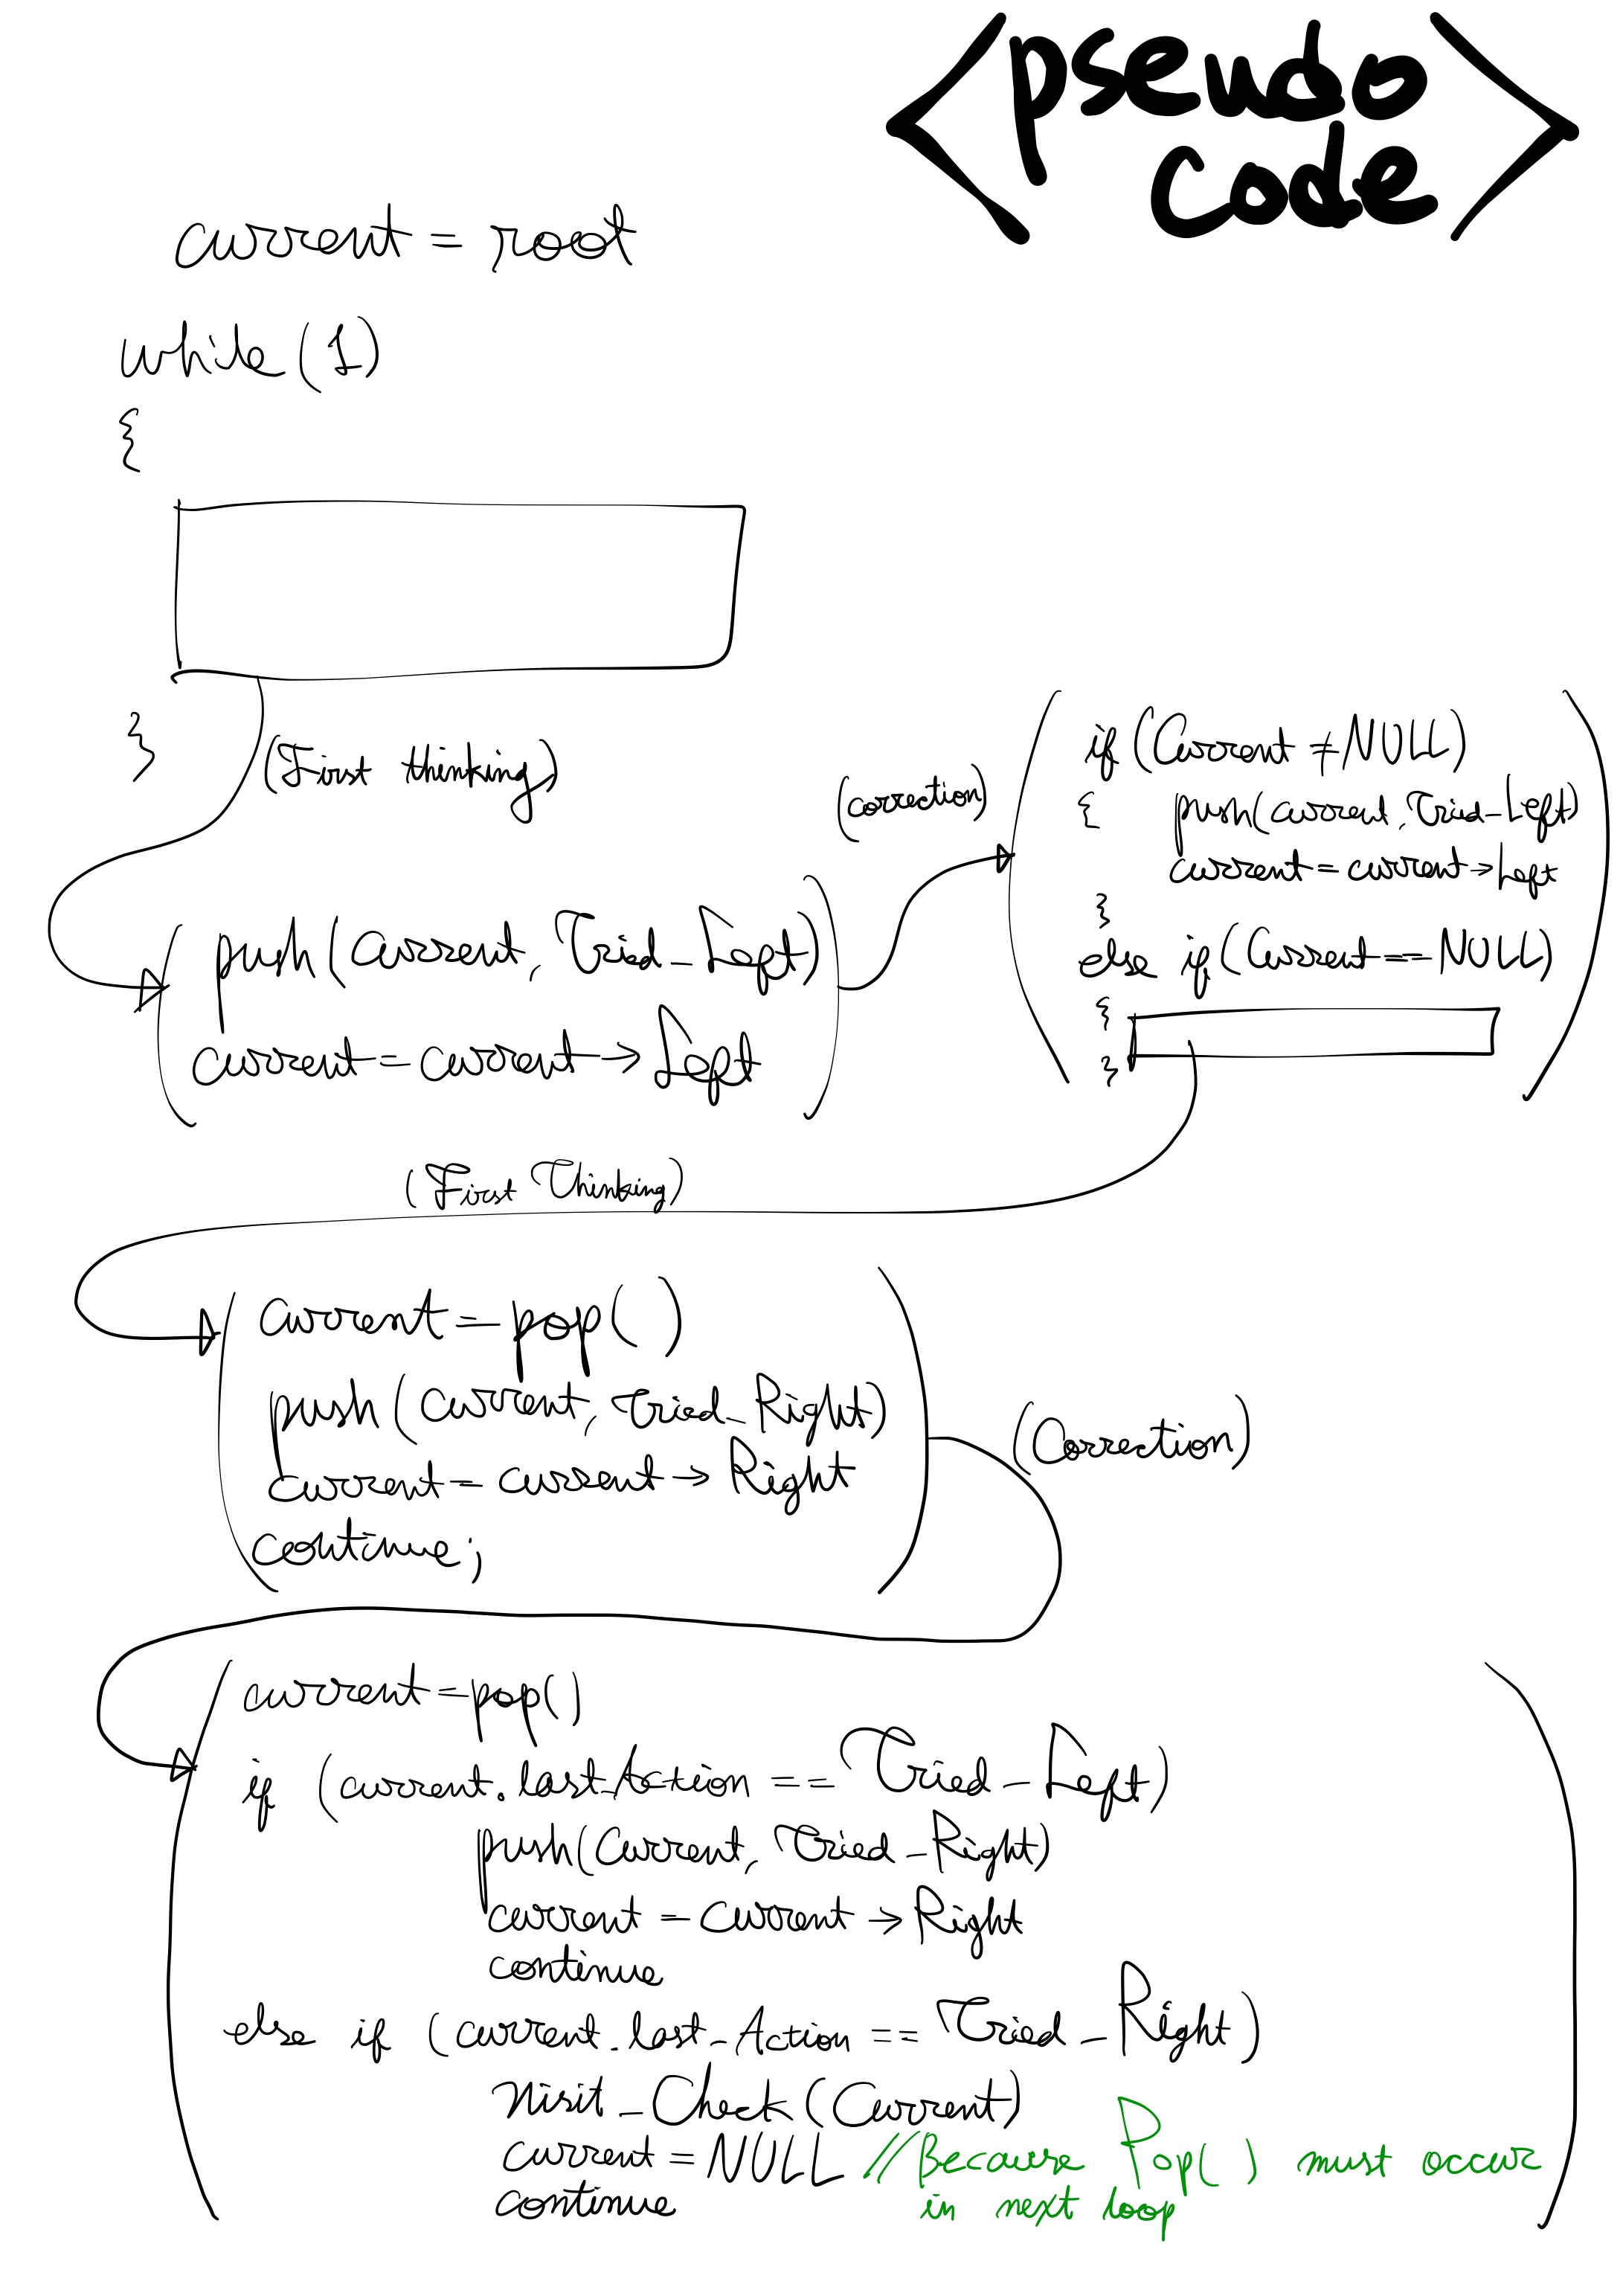 <pseudo
code>
current = root
while (1)
{
}
(First thinking)
push(current, Tried_Left)
current = current → Left
(correction)
if (Current ≠ NULL)
{ push(current, Tried_Left)
current = current → Left
}
else if (Current == NULL)
{
}
(First Thinking)
current = pop()
push(current, Tried_Right)
current = current → Right
continue;
(Correction)
current = pop()
if (current.last_Action == Tried_Left)
push(Current, Tried_Right)
current = current → Right
continue
else if (current.last_Action == Tried_Right)
Visit_Check(Current)
current = NULL //Because Pop() must occur
in next loop
continue